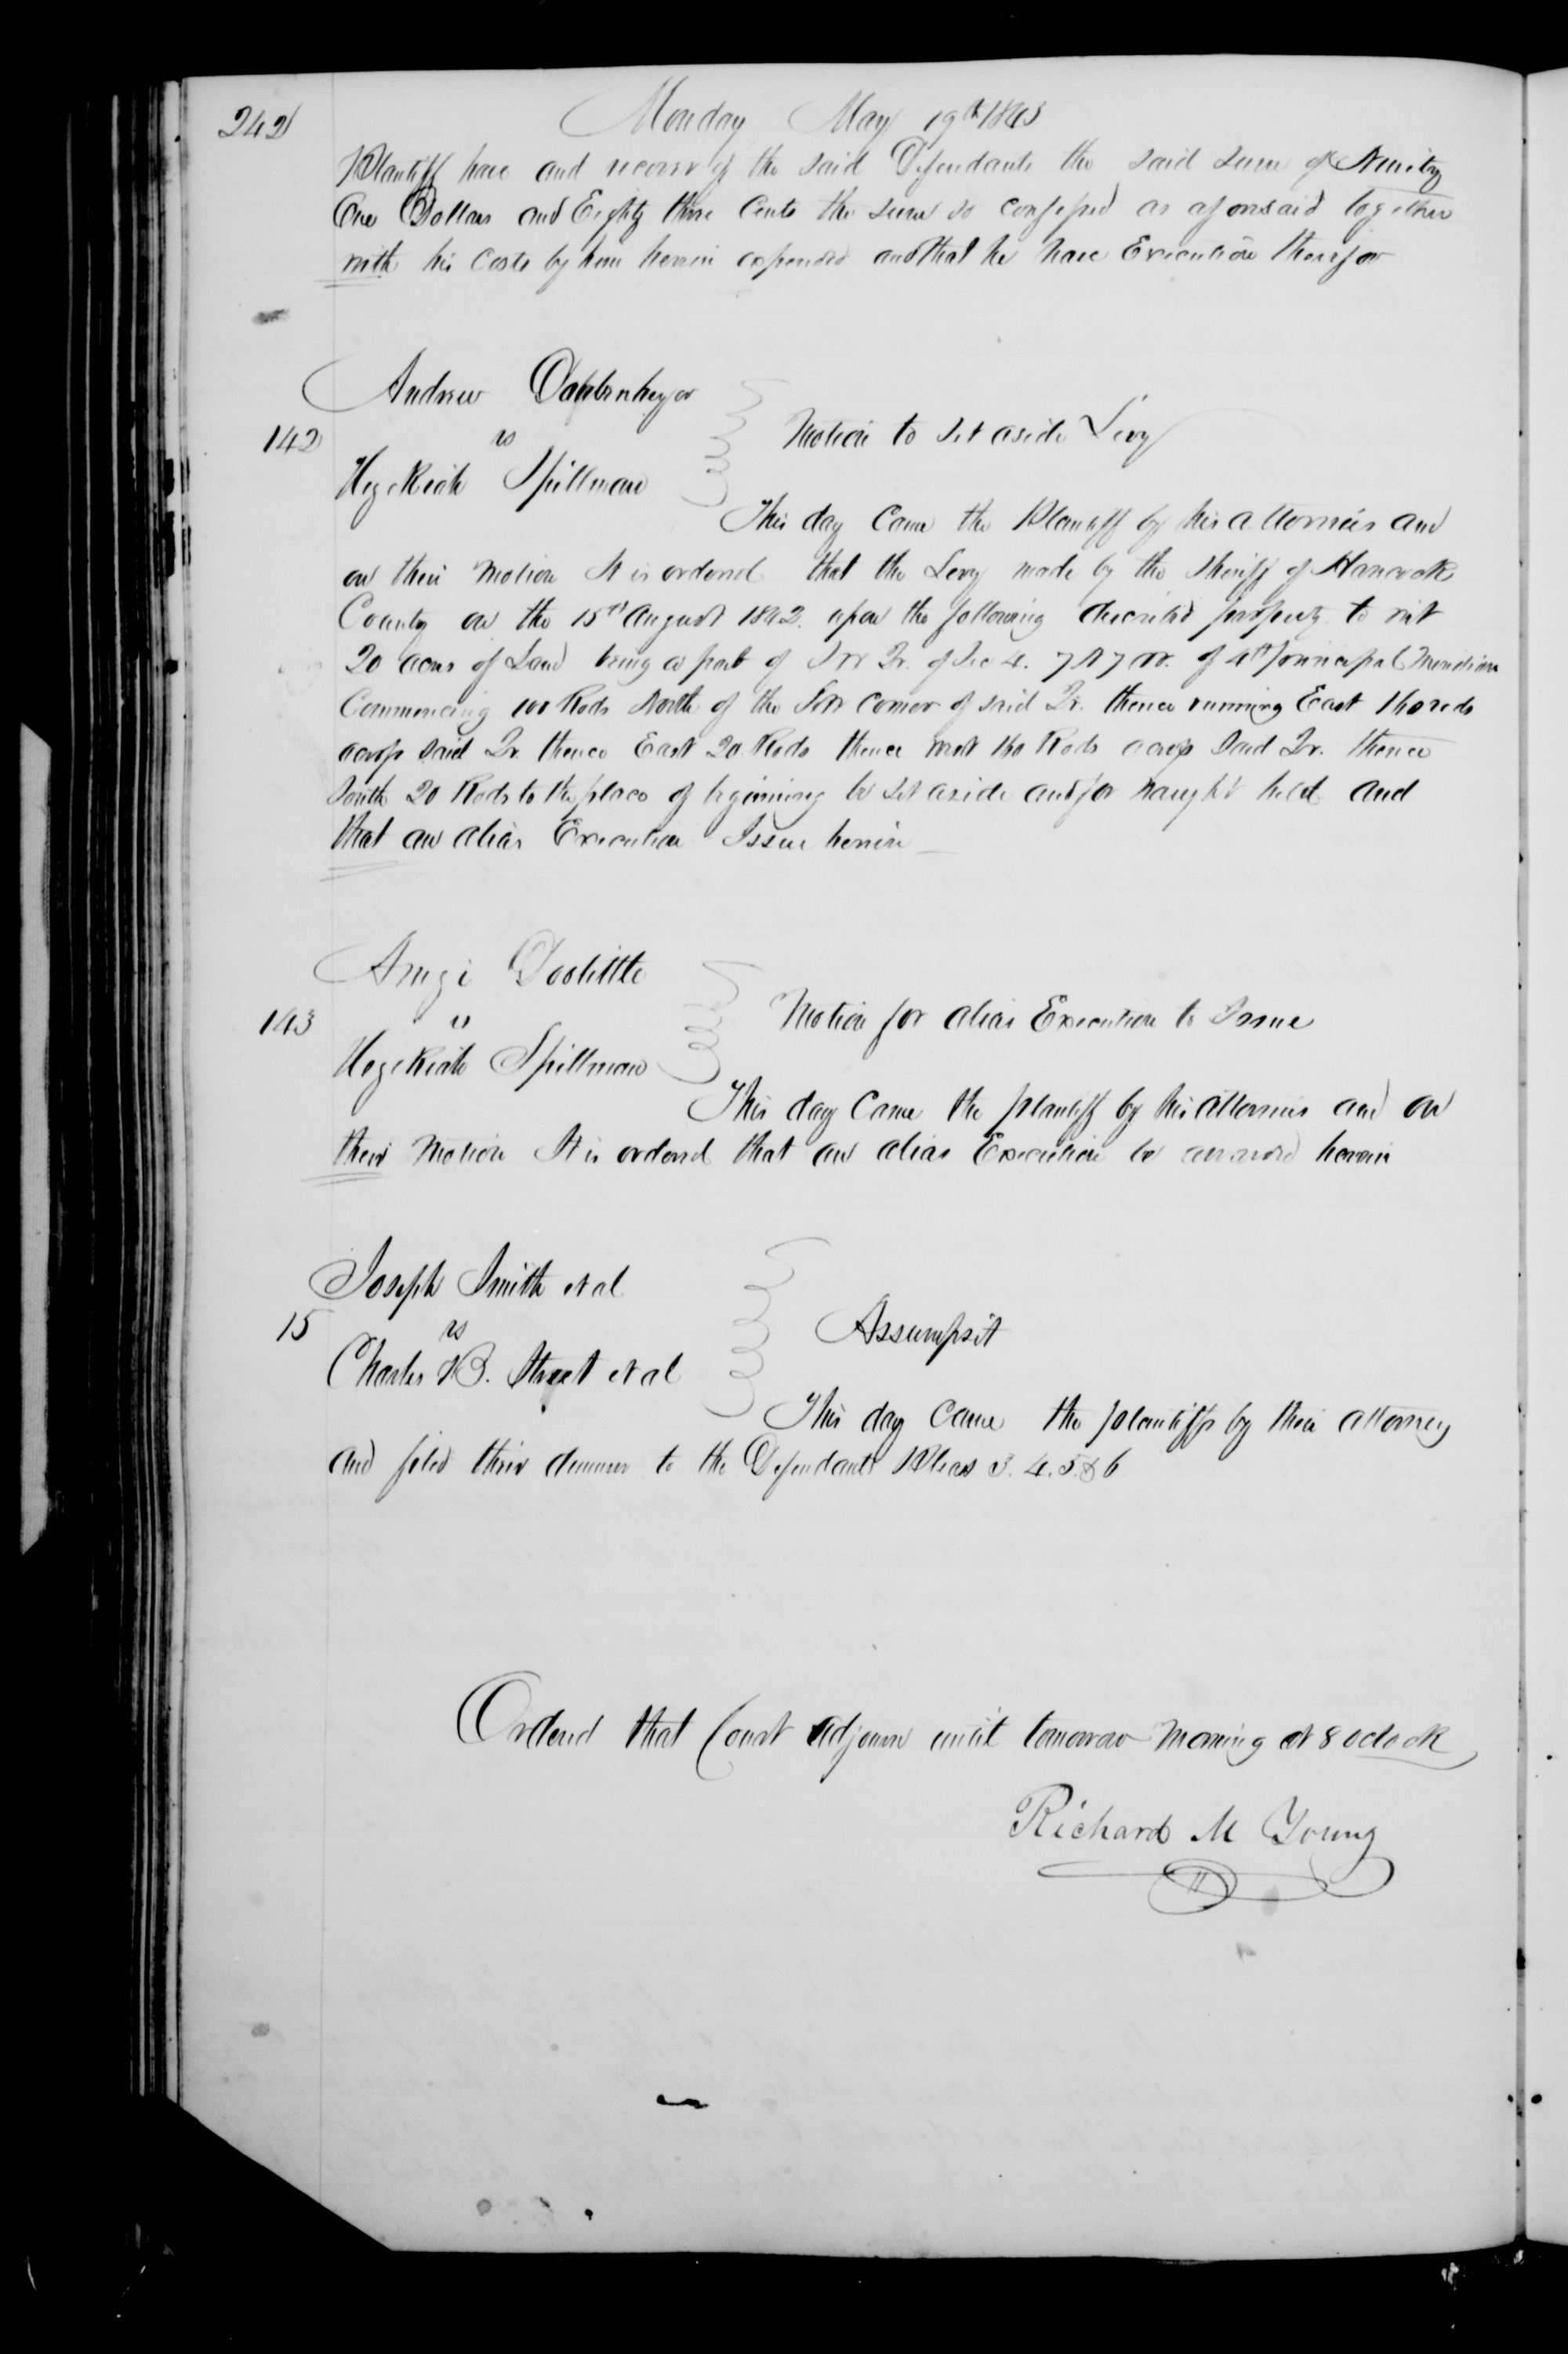 242
Monday May 19th 1843
Plantiff have and recover of the said Defendants the said sum of Ninity
One Dollars and Eighty three Cents the sum so confessed as aforesaid together
with his Costs by him herein expended and that he have Execution therefor
Andrew
142
vs
Hezekiah Spillman
Motion to set aside Levy
This day Came the Plantiff by his attornies and
on their Motion It is ordered that the Levy made by the Sheriff of Hancock
County on the 15th August 1842. upon the following described property to wit
20 acres of Land being a part of SW Qr. of Sec 4. 7 N 7 W. of 4th principal Meridian
Commencing 100 Rods North of the SW corner of said Qr. thence running East 160 rods
across said Qr. thence East 20 Rods thence west 160 Rods across said Qr. thence
South 20 Rods to the place of beginning be set aside and for naught held and
that an alias Execution Issue herein
Doolittle
143
vs
Hezekiah Spillman
Motion for alias Execution to Issue
This day Came the plantiff by his attornies and on
their Motion It is ordered that an alias Execution be awarded herein
Joseph Smith et al
15
vs
Charles B. Street et al
Assumpsit
This day Came the plantiffs by their attorney
and filed their demurer to the Defendants Pleas 3. 4. 5 & 6
Ordered that Court adjourn until tomorrow Morning at 8 oclock
Richard M Young